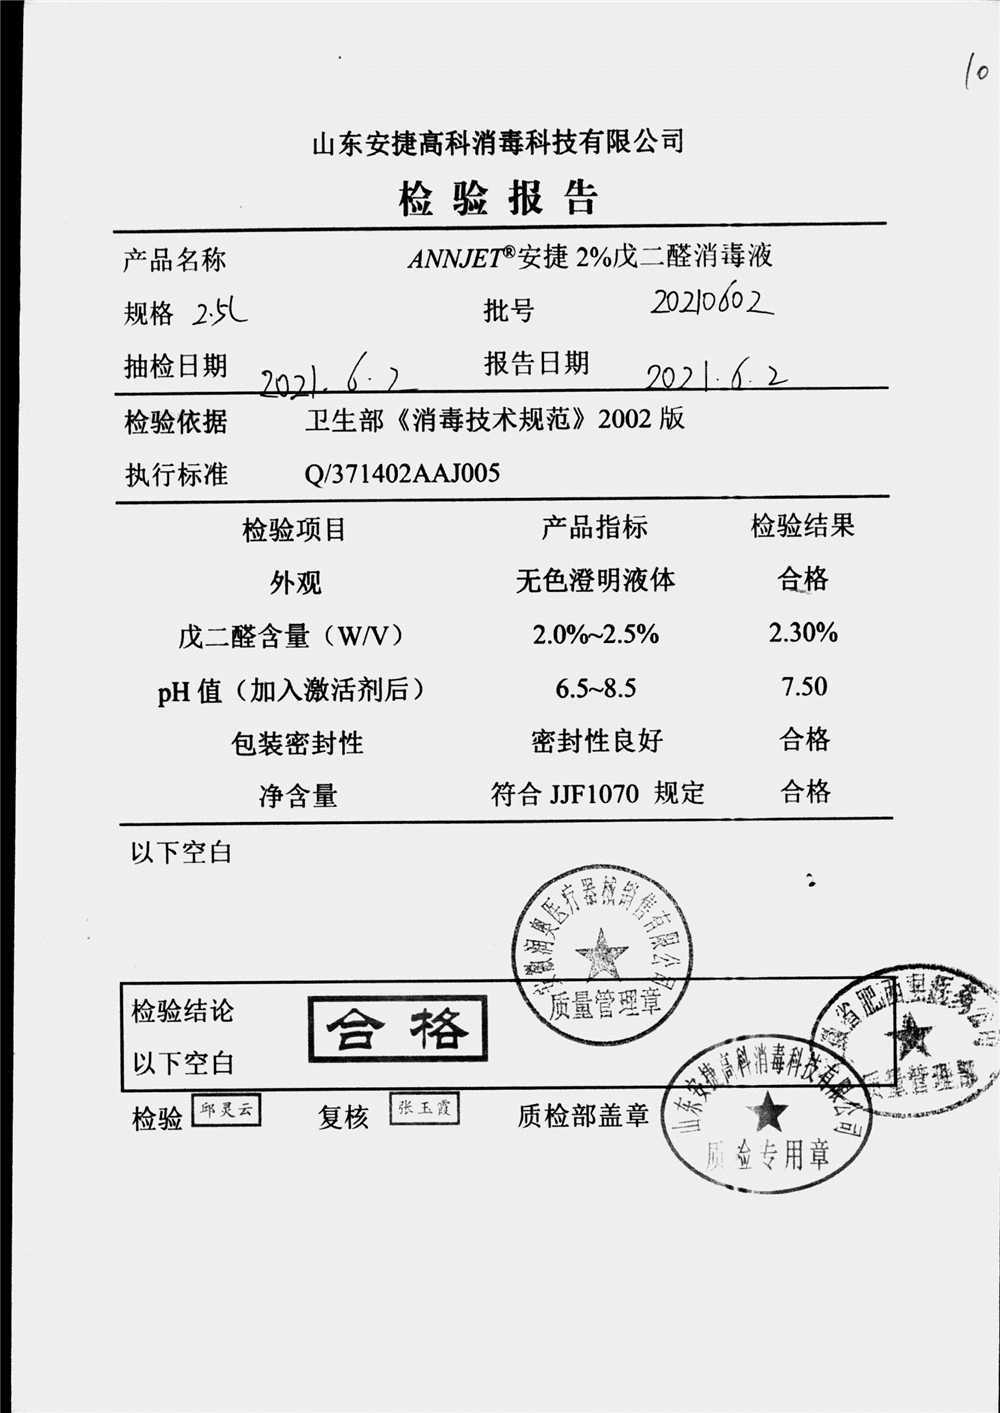 10
山东安捷高科消毒科技有限公司
检验报告
产品名称 ANNJET®安捷2%戊二醛消毒液
规格 2.5L 批号 20210602
抽检日期 2021.6.2 报告日期 2021.6.2
检验依据 卫生部《消毒技术规范》2002版
执行标准 Q/371402AAJ005
检验项目 产品指标 检验结果
外观 无色澄明液体 合格
戊二醛含量（W/V） 2.0%~2.5% 2.30%
pH值（加入激活剂后） 6.5~8.5 7.50
包装密封性 密封性良好 合格
净含量 符合JJF1070 规定 合格
以下空白
安徽润奥医疗器械销售有限公司
质量管理章
检验结论 合格
以下空白
省肥西县医药公司
质量管理部
检验 邱灵云 复核 张玉霞 质检部盖章
山东安捷高科消毒科技有限公司
质检专用章